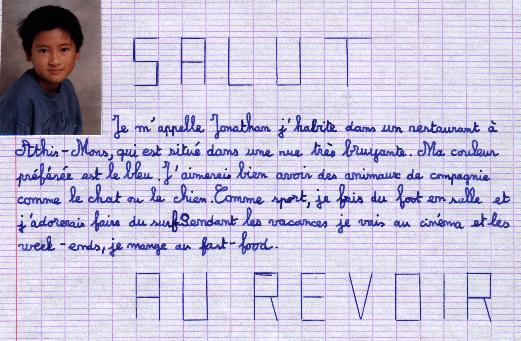 SALUT
Je m'appelle Jonathan j'habite dans un restaurant à
Athis-Mons, qui est situé dans une rue très bruyante. Ma couleur
préférée est le bleu. J'aimerais bien avoir des animaux de compagnie
comme le chat ou le chien. Comme sport, je fais du foot en salle et
j'adorerais faire du surf. Pendant les vacances je vais au cinéma et les
week-ends, je mange au fast-food.
AU REVOIR